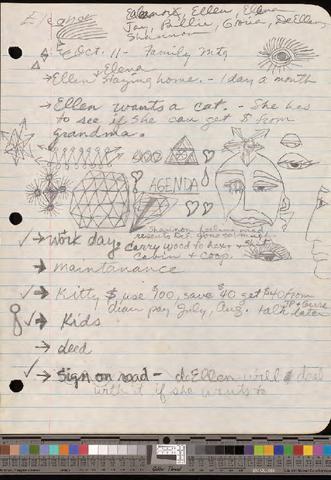 Eleanor, Ellen, Elena
Jan, Billie, Gloria, DeEllen,
Shannon
Oct. 11 - Family Mtg
+ Elena
→ Ellen staying home. - 1 day a month
→ Ellen wants a cat. - She has
to see if she can get $ from
grandma.
AGENDA
Shannon feeling mad
→ Work day
carry wood to hexa +
cabin & coop.
→ Maintanance
→ Kitty $ use 900, save $40 get $40 from
pay July, Aug. talk later
→ Kids
→ deed
→ Sign on road - deEllen will deal
with it if she wants to